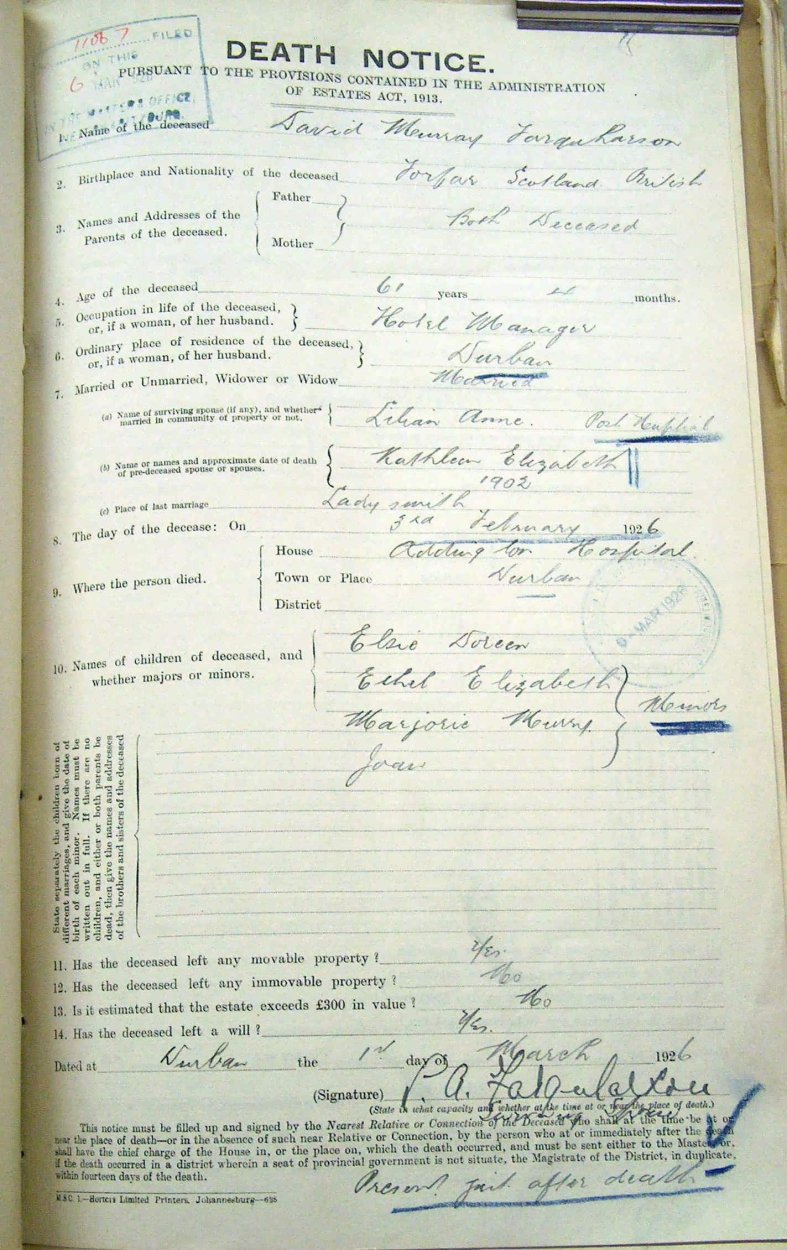 11087 FILED
ON THIS
6 MAR 1926
IN THE MASTER'S OFFICE,
DEATH NOTICE.
PURSUANT TO THE PROVISIONS CONTAINED IN THE ADMINISTRATION
OF ESTATES ACT, 1913.
1. Name of the deceased David Murray Farquharson
2. Birthplace and Nationality of the deceased Forfar Scotland British
3. Names and Addresses of the Parents of the deceased.
Father
Both Deceased
Mother
4. Age of the deceased 61 years 4 months.
5. Occupation in life of the deceased, or, if a woman, of her husband. Hotel Manager
6. Ordinary place of residence of the deceased, or, if a woman, of her husband. Durban
7. Married or Unmarried, Widower or Widow Married
(a) Name of surviving spouse (if any), and whether married in community of property or not. Lilian Anne. Post Nuptial
(b) Name or names and approximate date of death of pre-deceased spouse or spouses. Kathleen Elizabeth
1902
(c) Place of last marriage Ladysmith
8. The day of the decease: On 3rd February 1926
9. Where the person died.
House Addington Hospital
Town or Place Durban
District
6 - MAR 1926
10. Names of children of deceased, and whether majors or minors.
Elsie Doreen
Ethel Elizabeth
Marjorie Murray
Minors
Joan
State separately the children born of
different marriages, and give the date of
birth of each minor. Names must be
written out in full. If there are no
children, and either or both parents be
dead, then give the names and addresses
of the brothers and sisters of the deceased
11. Has the deceased left any movable property? Yes.
12. Has the deceased left any immovable property? No
13. Is it estimated that the estate exceeds £300 in value? No
14. Has the deceased left a will? Yes.
Dated at Durban the 1st day of March 1926
(Signature) L. A. Farquharson
(State in what capacity and whether at the time at or near the place of death.)
Surviving Spouse
This notice must be filled up and signed by the Nearest Relative or Connection of the Deceased who shall at the time be at or
near the place of death—or in the absence of such near Relative or Connection, by the person who at or immediately after the death
shall have the chief charge of the House in, or the place on, which the death occurred, and must be sent either to the Master or,
if the death occurred in a district wherein a seat of provincial government is not situate, the Magistrate of the District, in duplicate,
within fourteen days of the death.
Present just after death
M.S.C. 1.—Hortors Limited Printers, Johannesburg—635